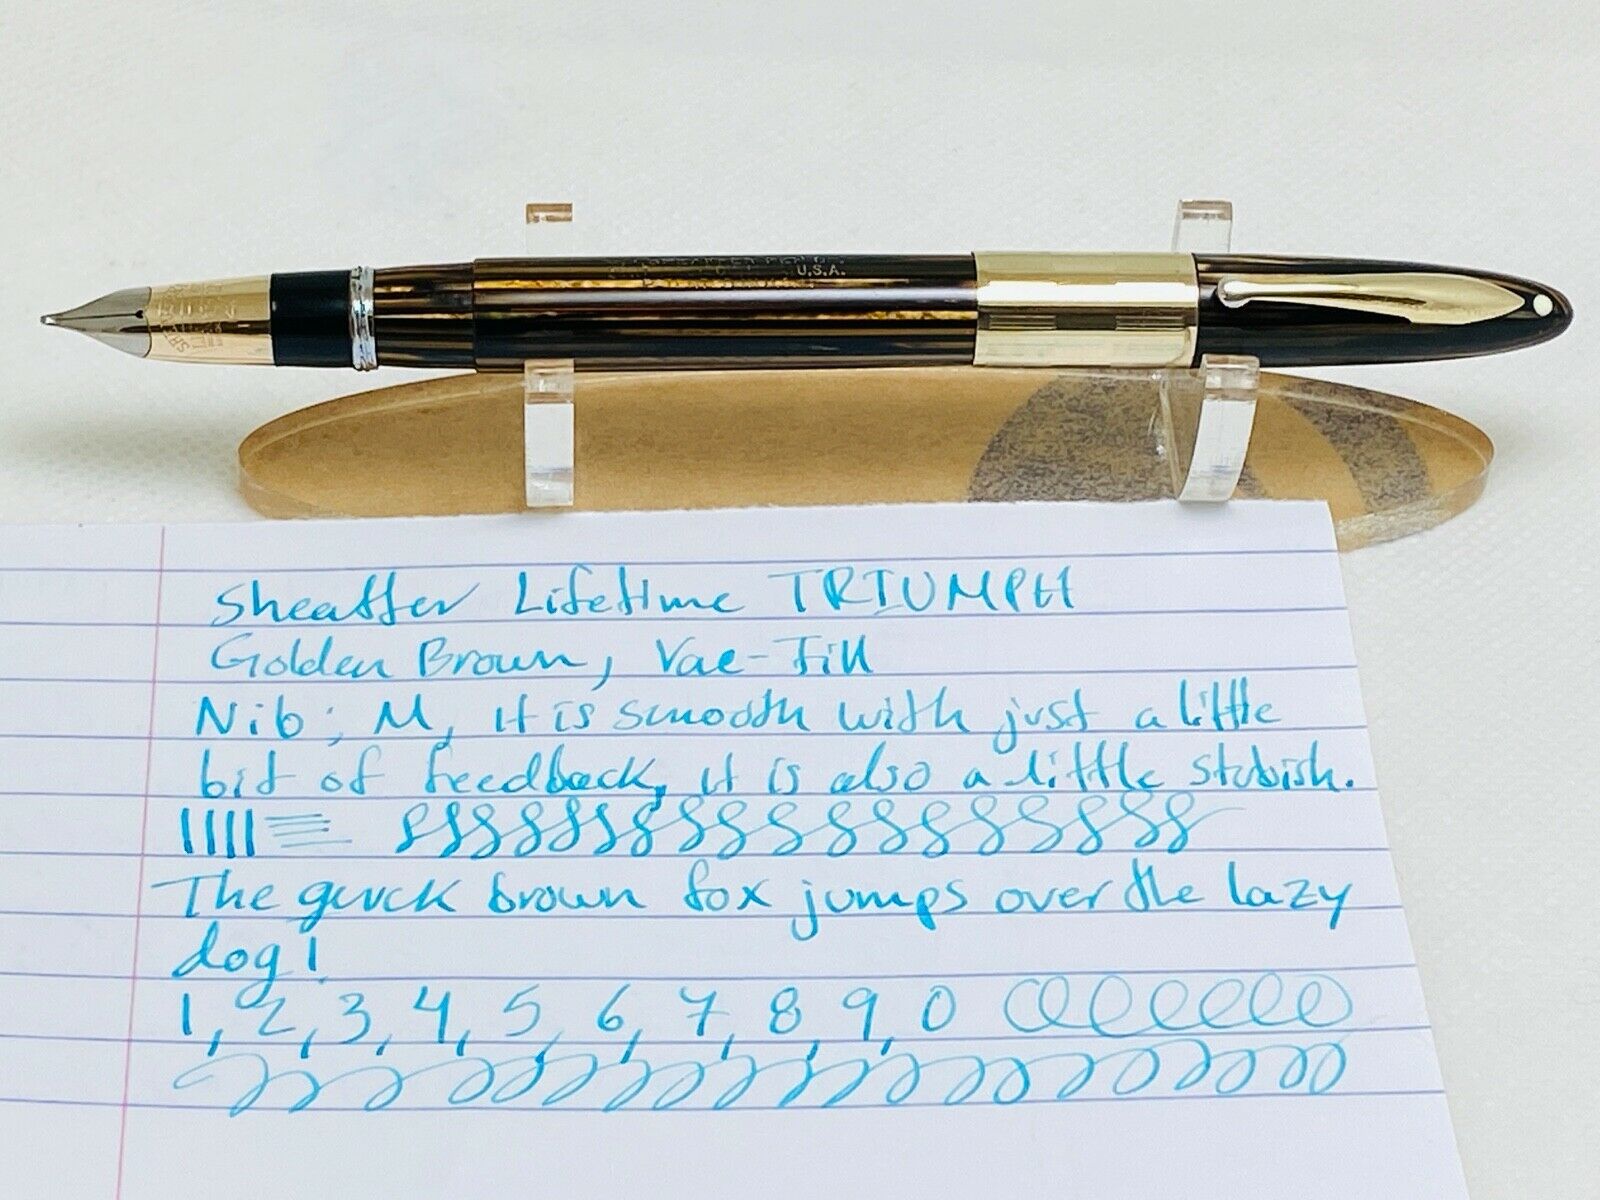 U.S.A.
Sheaffer Lifetime TRIUMPH
Golden Brown, Vac-Fill
Nib: M, it is smooth with just a little
bit of feedback, it is also a little stubish.
The quick brown fox jumps over the lazy
dog!
1, 2, 3, 4, 5, 6, 7, 8, 9, 0